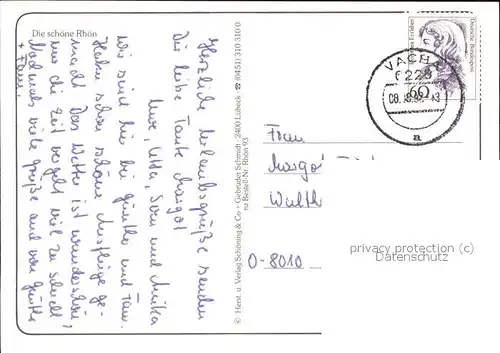 Die schöne Rhön
Herzliche Urlaubsgrüße senden
Dir liebe Tante Margot
Uwe, Utta, Sven und Anika
Wir sind hier bei Günther und Tam.
Haben schon schöne Ausflüge ge-
macht. Das Wetter ist wunderschön,
nur die Zeit vergeht viel zu schnell
Nochmals viele Grüße auch von Günther
+ Fam.
© Herst. u. Verlag Schöning & Co + Gebrüder Schmidt · 2400 Lübeck · ☎ (0451) 310 310 0
nz Bestell-Nr. Rhön 93
Deutsche Bundespost
60
VACHA
6223
a
Frau
Margot
Walth
O-8010
privacy protection (c)
Datenschutz